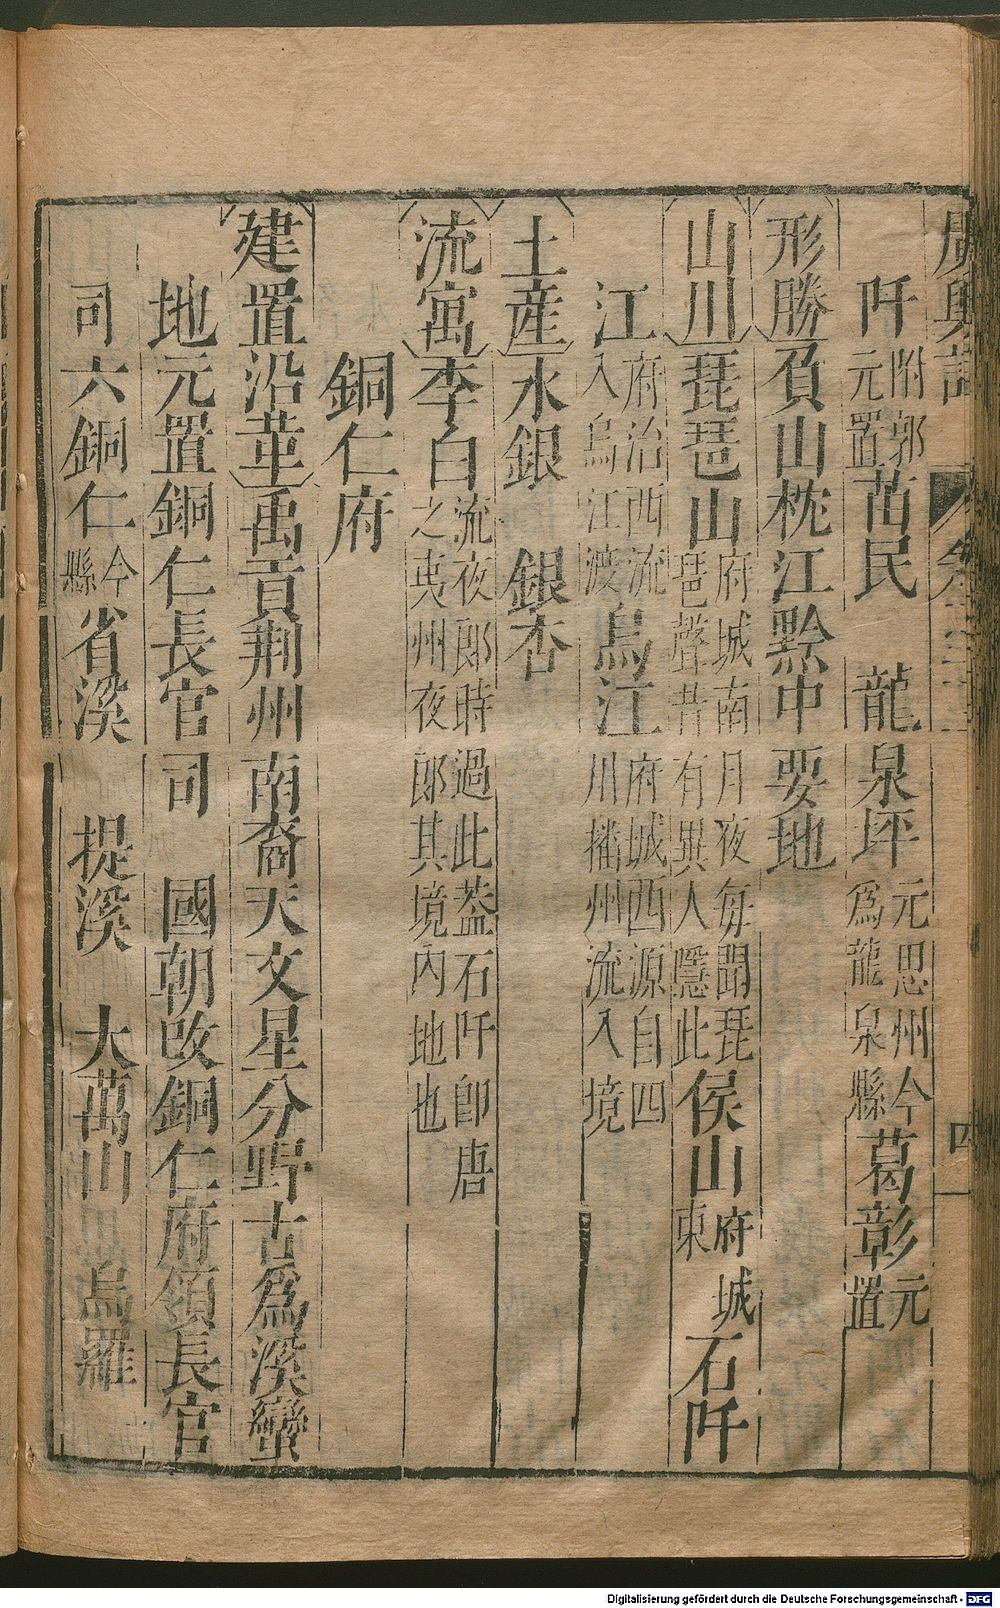 廣輿記 四
阡附郭元置苗民 龍泉坪元思州今為龍泉縣葛彰元置
形勝負山枕江黔中要地
山川琵琶山府城南月夜每聞琵琶聲昔有異人隱此侯山府城東石阡
江府治西流入烏江渡烏江府城西源自四川播州流入境
土產水銀 銀杏
流寓李白流夜郎時過此葢石阡即唐之夷州夜郎其境內地也
銅仁府
建置沿革禹貢荆州南裔天文星分野古為溪蠻
地元置銅仁長官司 國朝改銅仁府領長官
司六銅仁今縣省溪 提溪 大萬山 烏羅
Digitalisierung gefördert durch die Deutsche Forschungsgemeinschaft - DFG